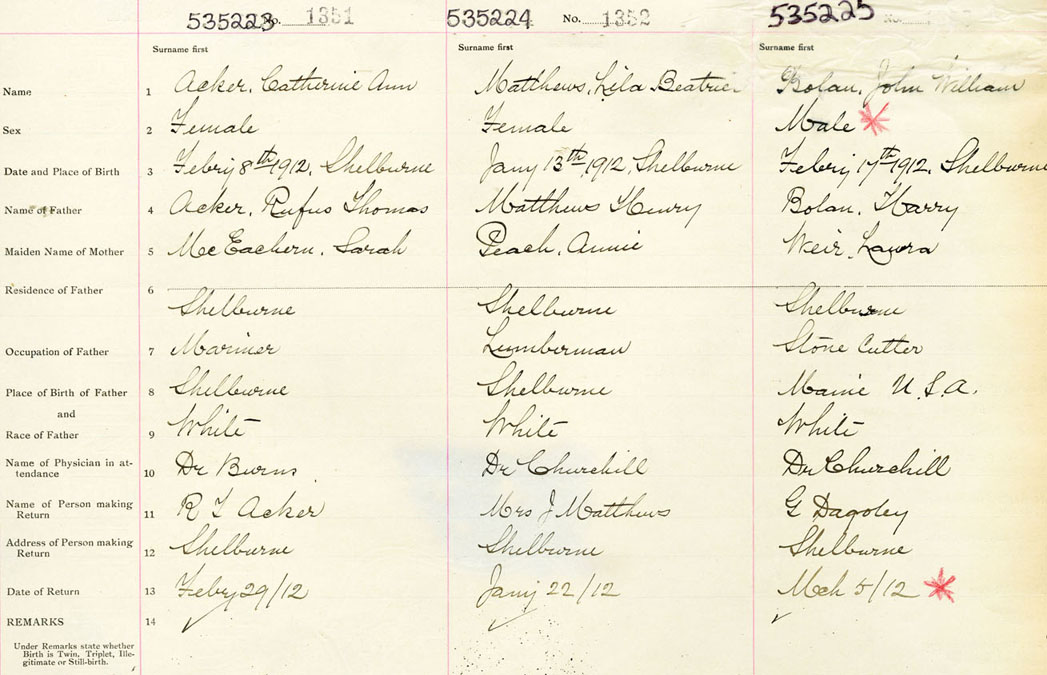 535223 No. 1351 535224 No. 1352 535225 No.
Surname first Surname first Surname first
Name 1 Acker, Catherine Ann Matthews, Lila Beatrice Bolan, John William
Sex 2 Female Female Male
Date and Place of Birth 3 Febry 8th 1912, Shelburne Jany 13th 1912, Shelburne Febry 17th 1912, Shelburne
Name of Father 4 Acker, Rufus Thomas Matthews Henry Bolan, Harry
Maiden Name of Mother 5 McEachern, Sarah Peach, Annie Weir, Laura
Residence of Father 6 Shelburne Shelburne Shelburne
Occupation of Father 7 Mariner Lumberman Stone Cutter
Place of Birth of Father 8 Shelburne Shelburne Maine U.S.A.
and
Race of Father 9 White White White
Name of Physician in at-
tendance 10 Dr Burns Dr Churchill Dr Churchill
Name of Person making
Return 11 R T Acker Mrs J Matthews G
Address of Person making
Return 12 Shelburne Shelburne Shelburne
Date of Return 13 Febry 29/12 Jany 22/12 Mch 5/12
REMARKS 14
Under Remarks state whether
Birth is Twin, Triplet, Ille-
gitimate or Still-birth.